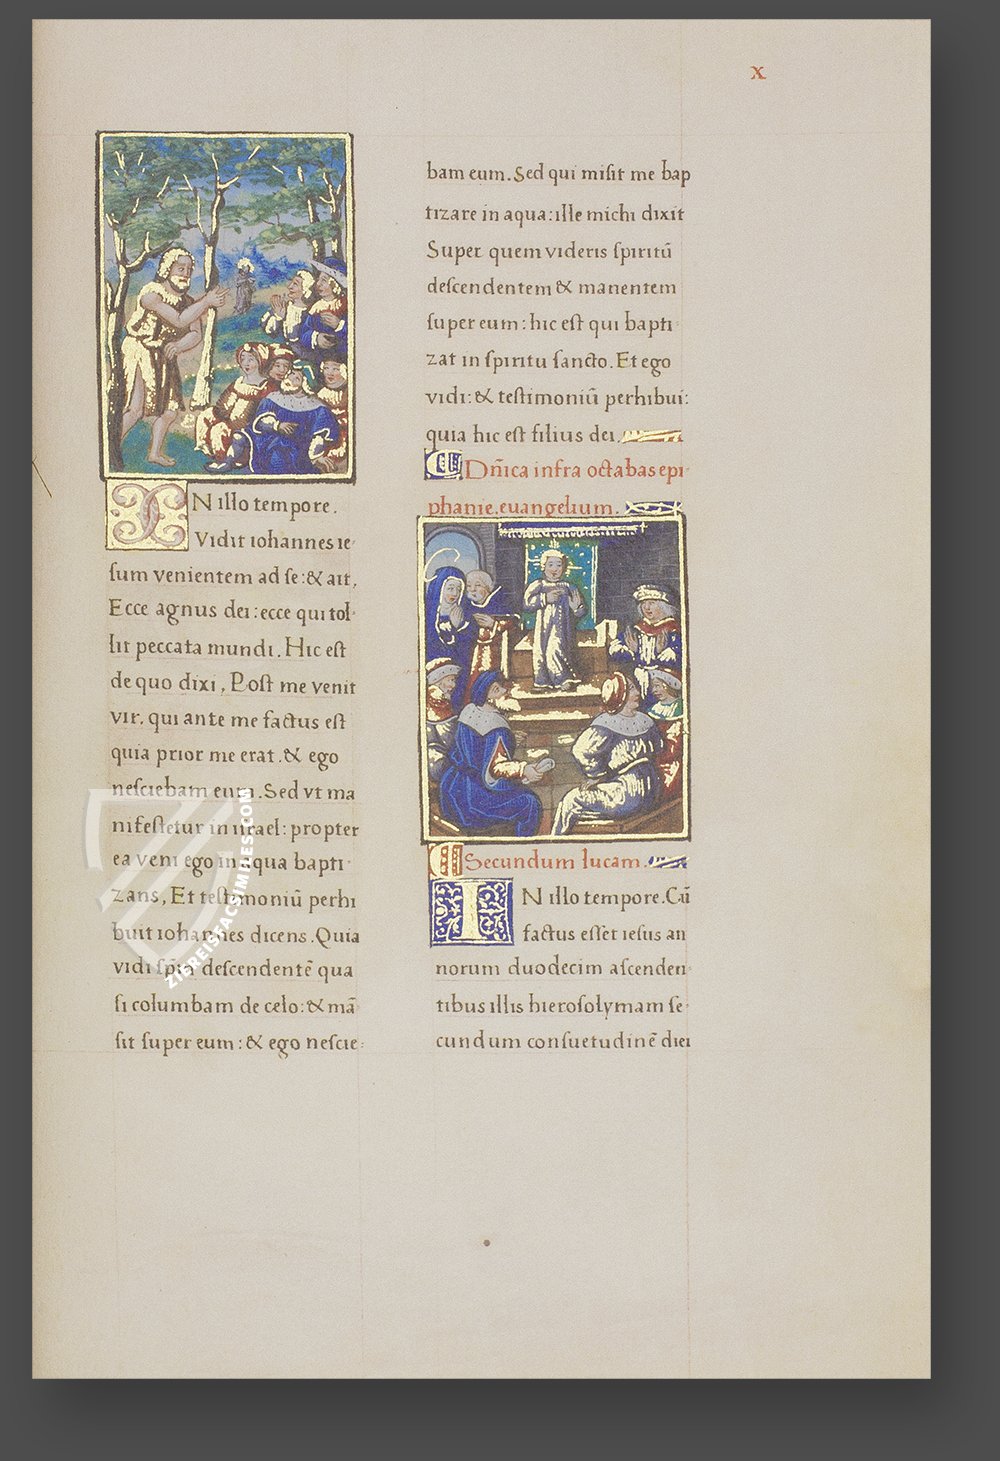 x
IN illo tempore.
Vidit iohannes ie-
sum venientem ad se: & ait,
Ecce agnus dei: ecce qui tol-
lit peccata mundi. Hic est
de quo dixi, Post me venit
vir, qui ante me factus est
quia prior me erat. & ego
nesciebam eum. Sed vt ma
nifestetur in israel: propter
ea veni ego in aqua bapti-
zans, Et testimoniū perhi
buit iohannes dicens. Quia
vidi spm̄ descendentē qua
si columbam de celo: & mā-
sit super eum: & ego nescie-
bam eum. Sed qui misit me bap
tizare in aqua: ille michi dixit
Super quem videris spiritū
descendentem & manentem
super eum: hic est qui bapti-
zat in spiritu sancto. Et ego
vidi: & testimoniū perhibui:
quia hic est filius dei.
Dn̄ica infra octabas epi-
phanie. euangelium.
Secundum lucam.
IN illo tempore. Cū
factus esset iesus an
norum duodecim ascenden-
tibus illis hierosolymam se-
cundum consuetudinē diei
ZIEREISFACSIMILES.COM